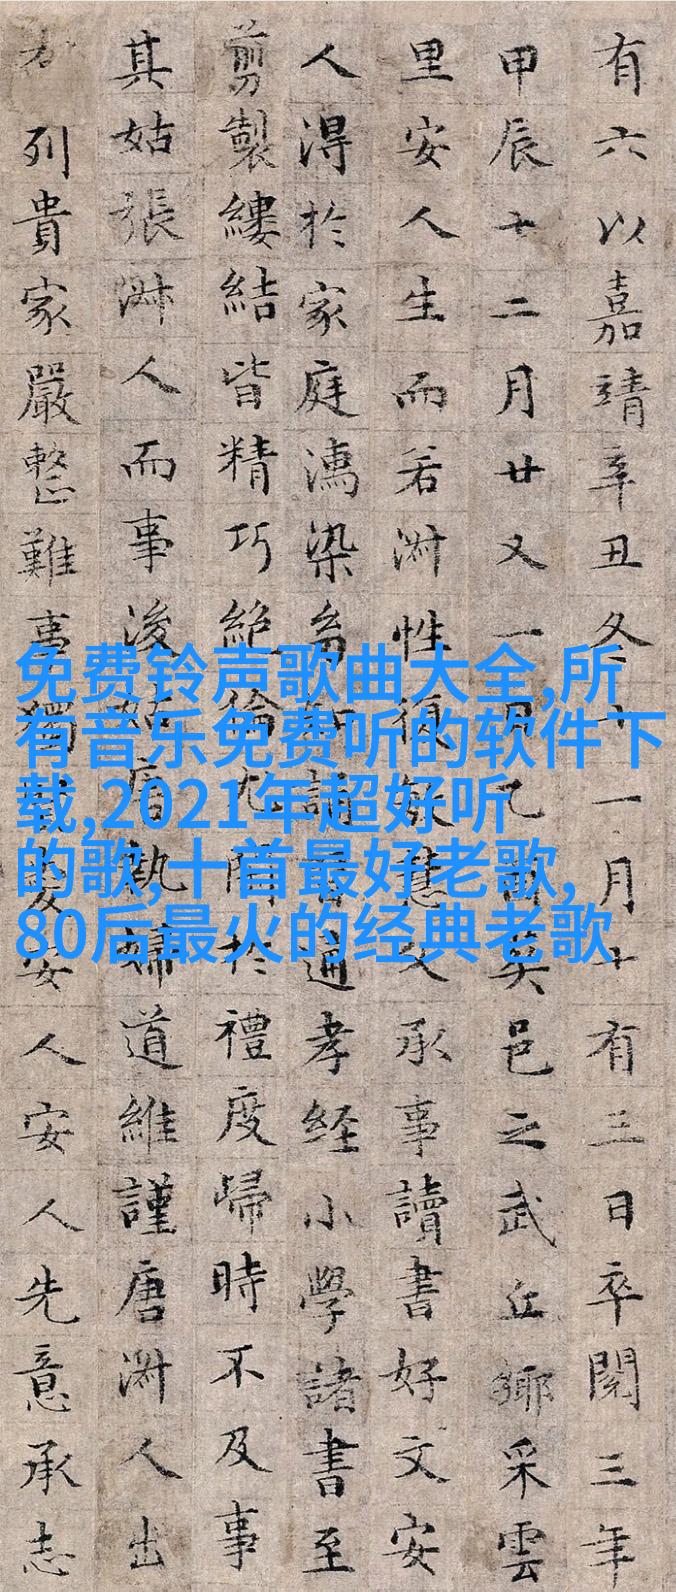 有六以嘉靖辛丑冬十一月十有三日卒閱三年
甲辰十二月廿又一月乙酉葬邑之武丘鄉采雲
里安人生而若淑性復敏慧父承事讀書好文安
人淂於家庭濡染誦習通孝経小學諸書至
剪製縷結皆精巧絕倫尤閑於禮度歸時不及事
其姑張淑人而事浚姑唐執婦道維謹唐淑人出
列貴家嚴整難事獨賢愛安人安人先意承志
免费铃声歌曲大全,所
有音乐免费听的软件下
载,2021年超好听
的歌,十首最好老歌,
80后最火的经典老歌